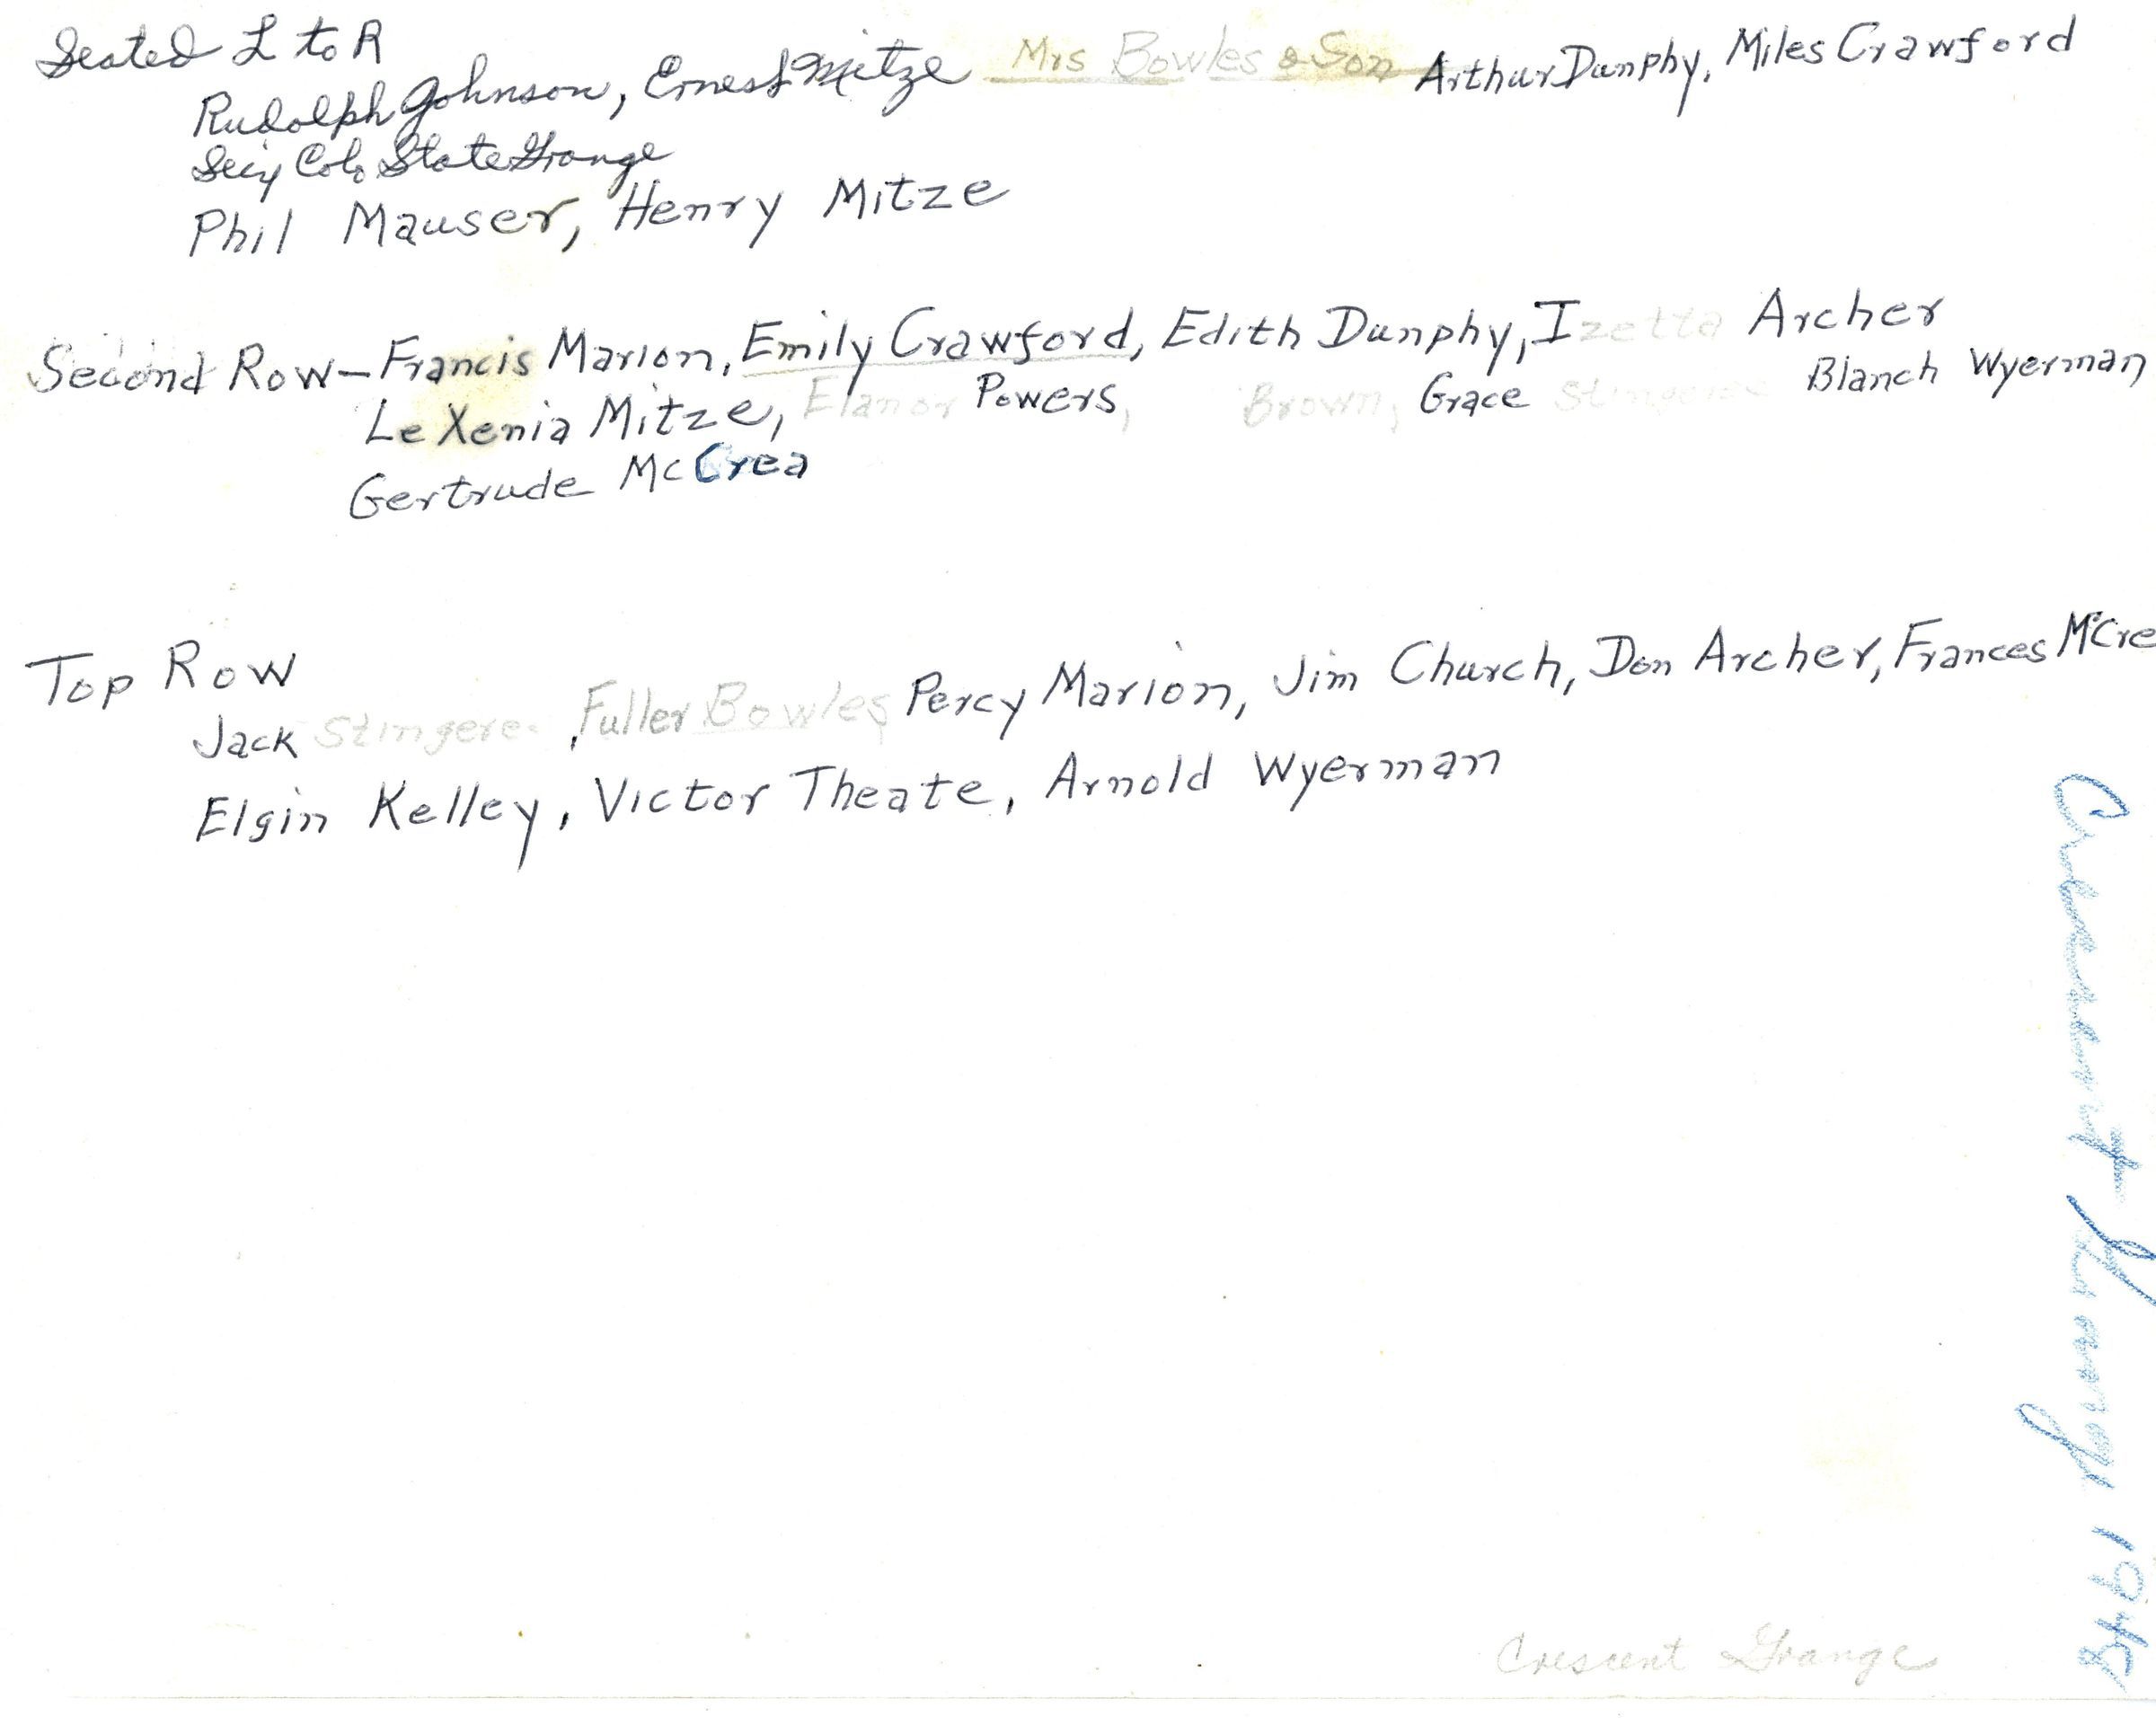 Seated L to R
Rudolph Johnson, Ernest Mitze Mrs Bowles & Son Arthur Dunphy, Miles Crawford
Secy Colo State Grange
Phil Mauser, Henry Mitze
Second Row - Francis Marion, Emily Crawford, Edith Dunphy, Izetta Archer
Le Xenia Mitze, Elanor Powers, Brown, Grace Blanch Wyerman
Gertrude McCrea
Top Row
Jack , Fuller Bowles Percy Marion, Jim Church, Don Archer, Frances McCre
Elgin Kelley, Victor Theate, Arnold Wyerman
Crescent Grange 1948
Crescent Grange